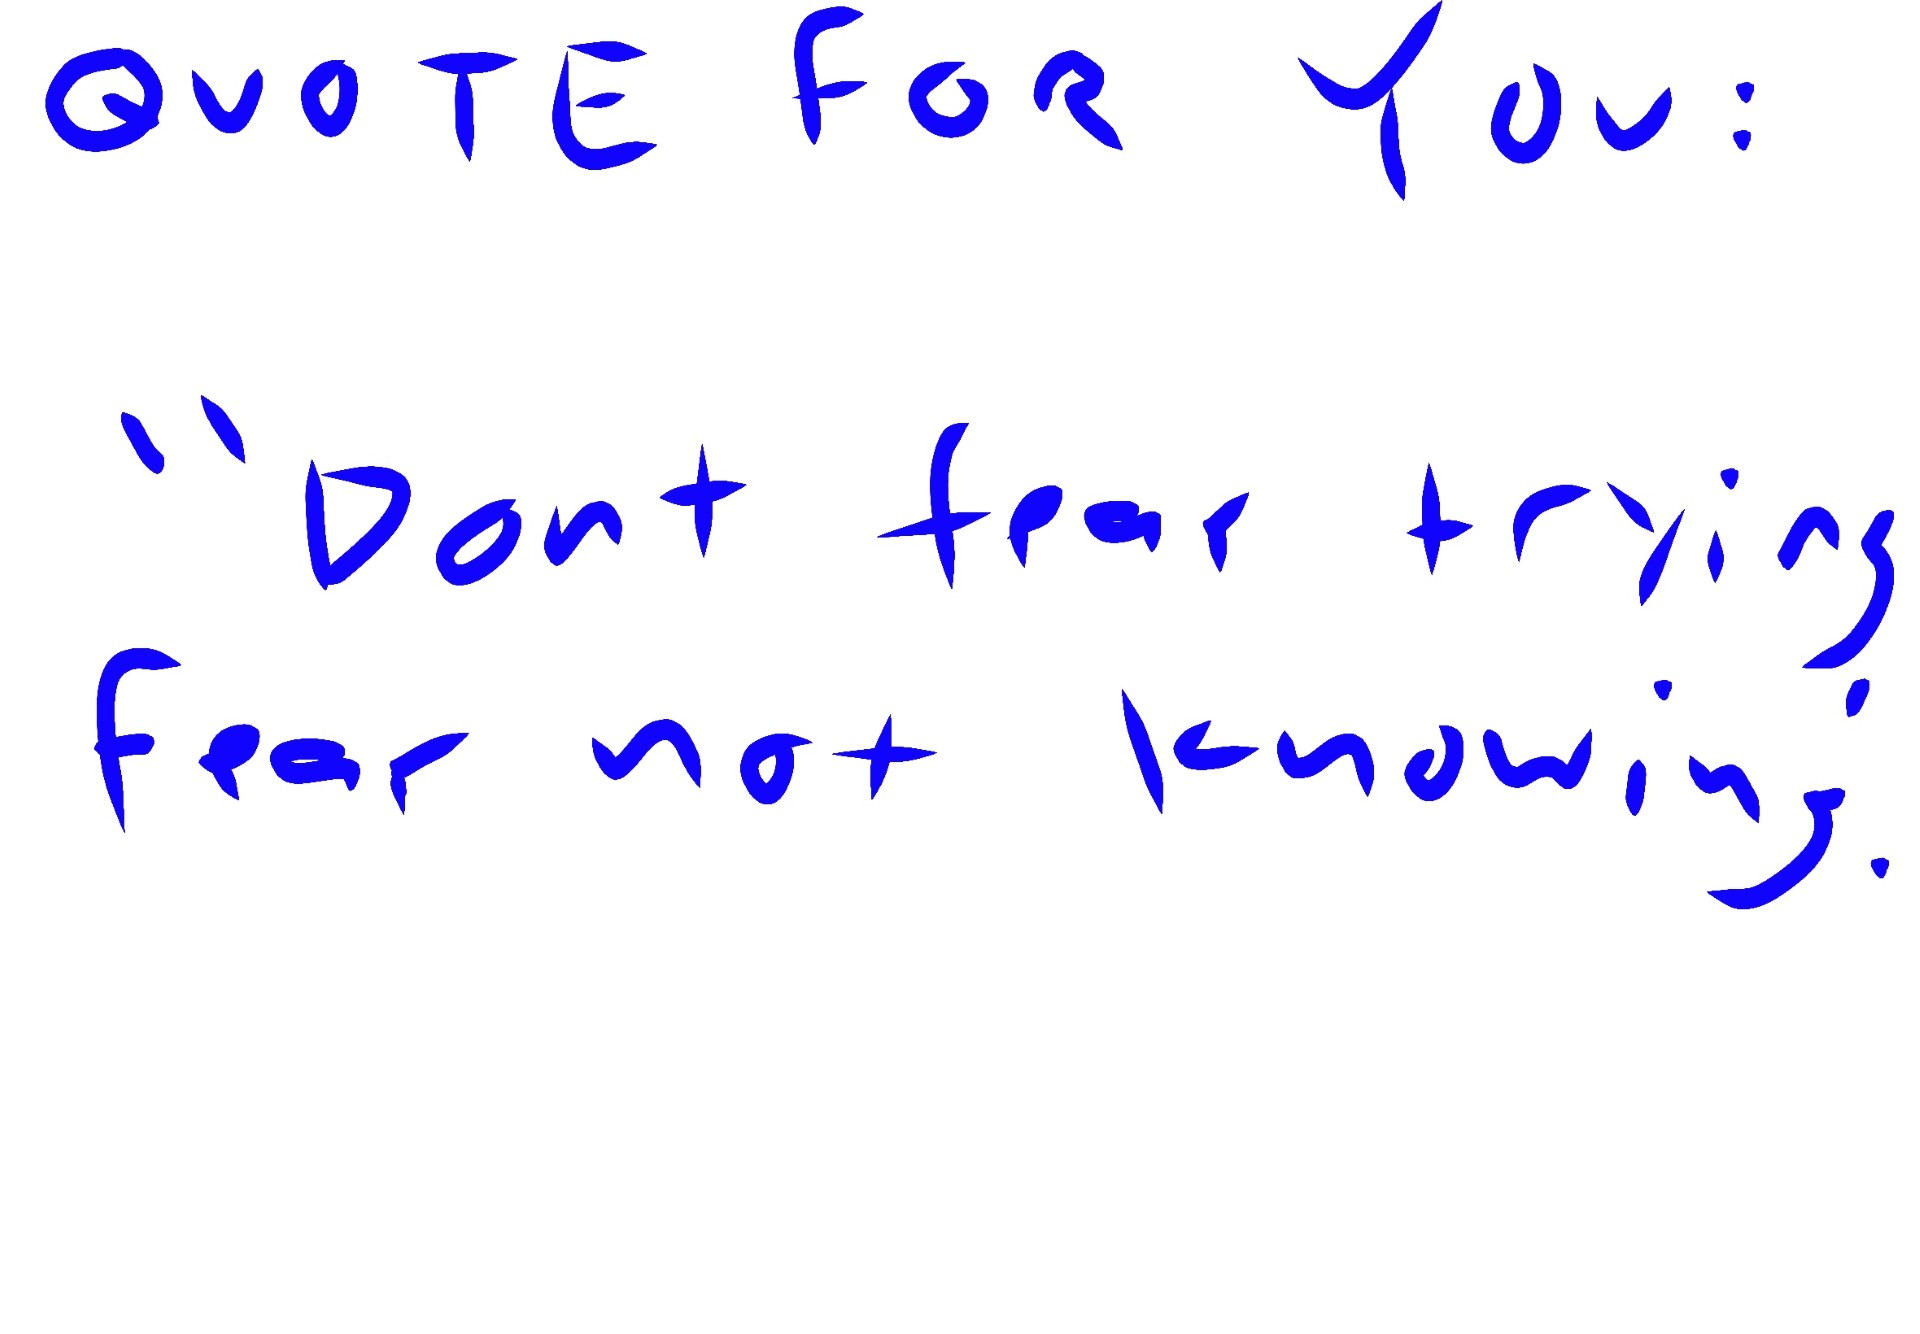 QUOTE FOR YOU:
"Dont fear trying
fear not knowing.'